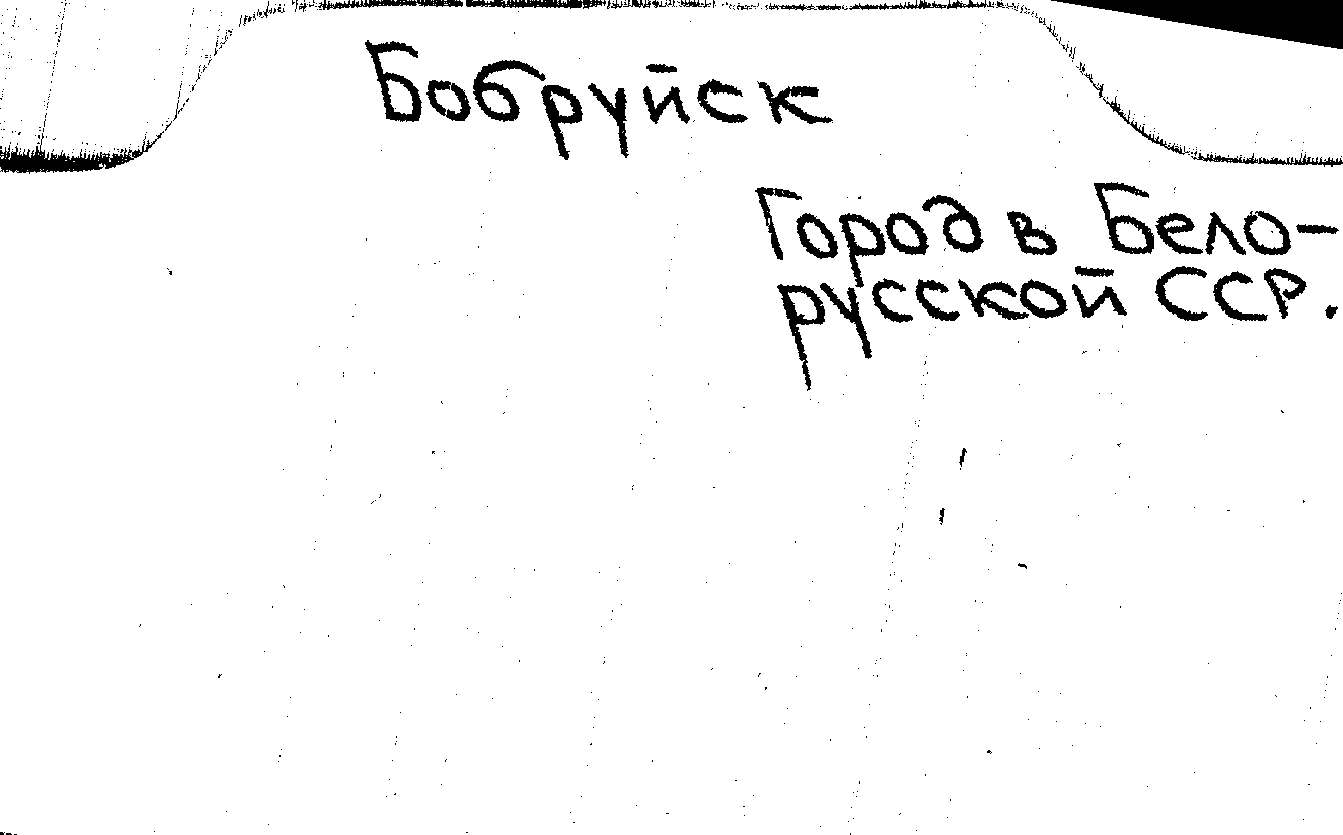 Бобруйск
Город в Бело-
русской ССР.